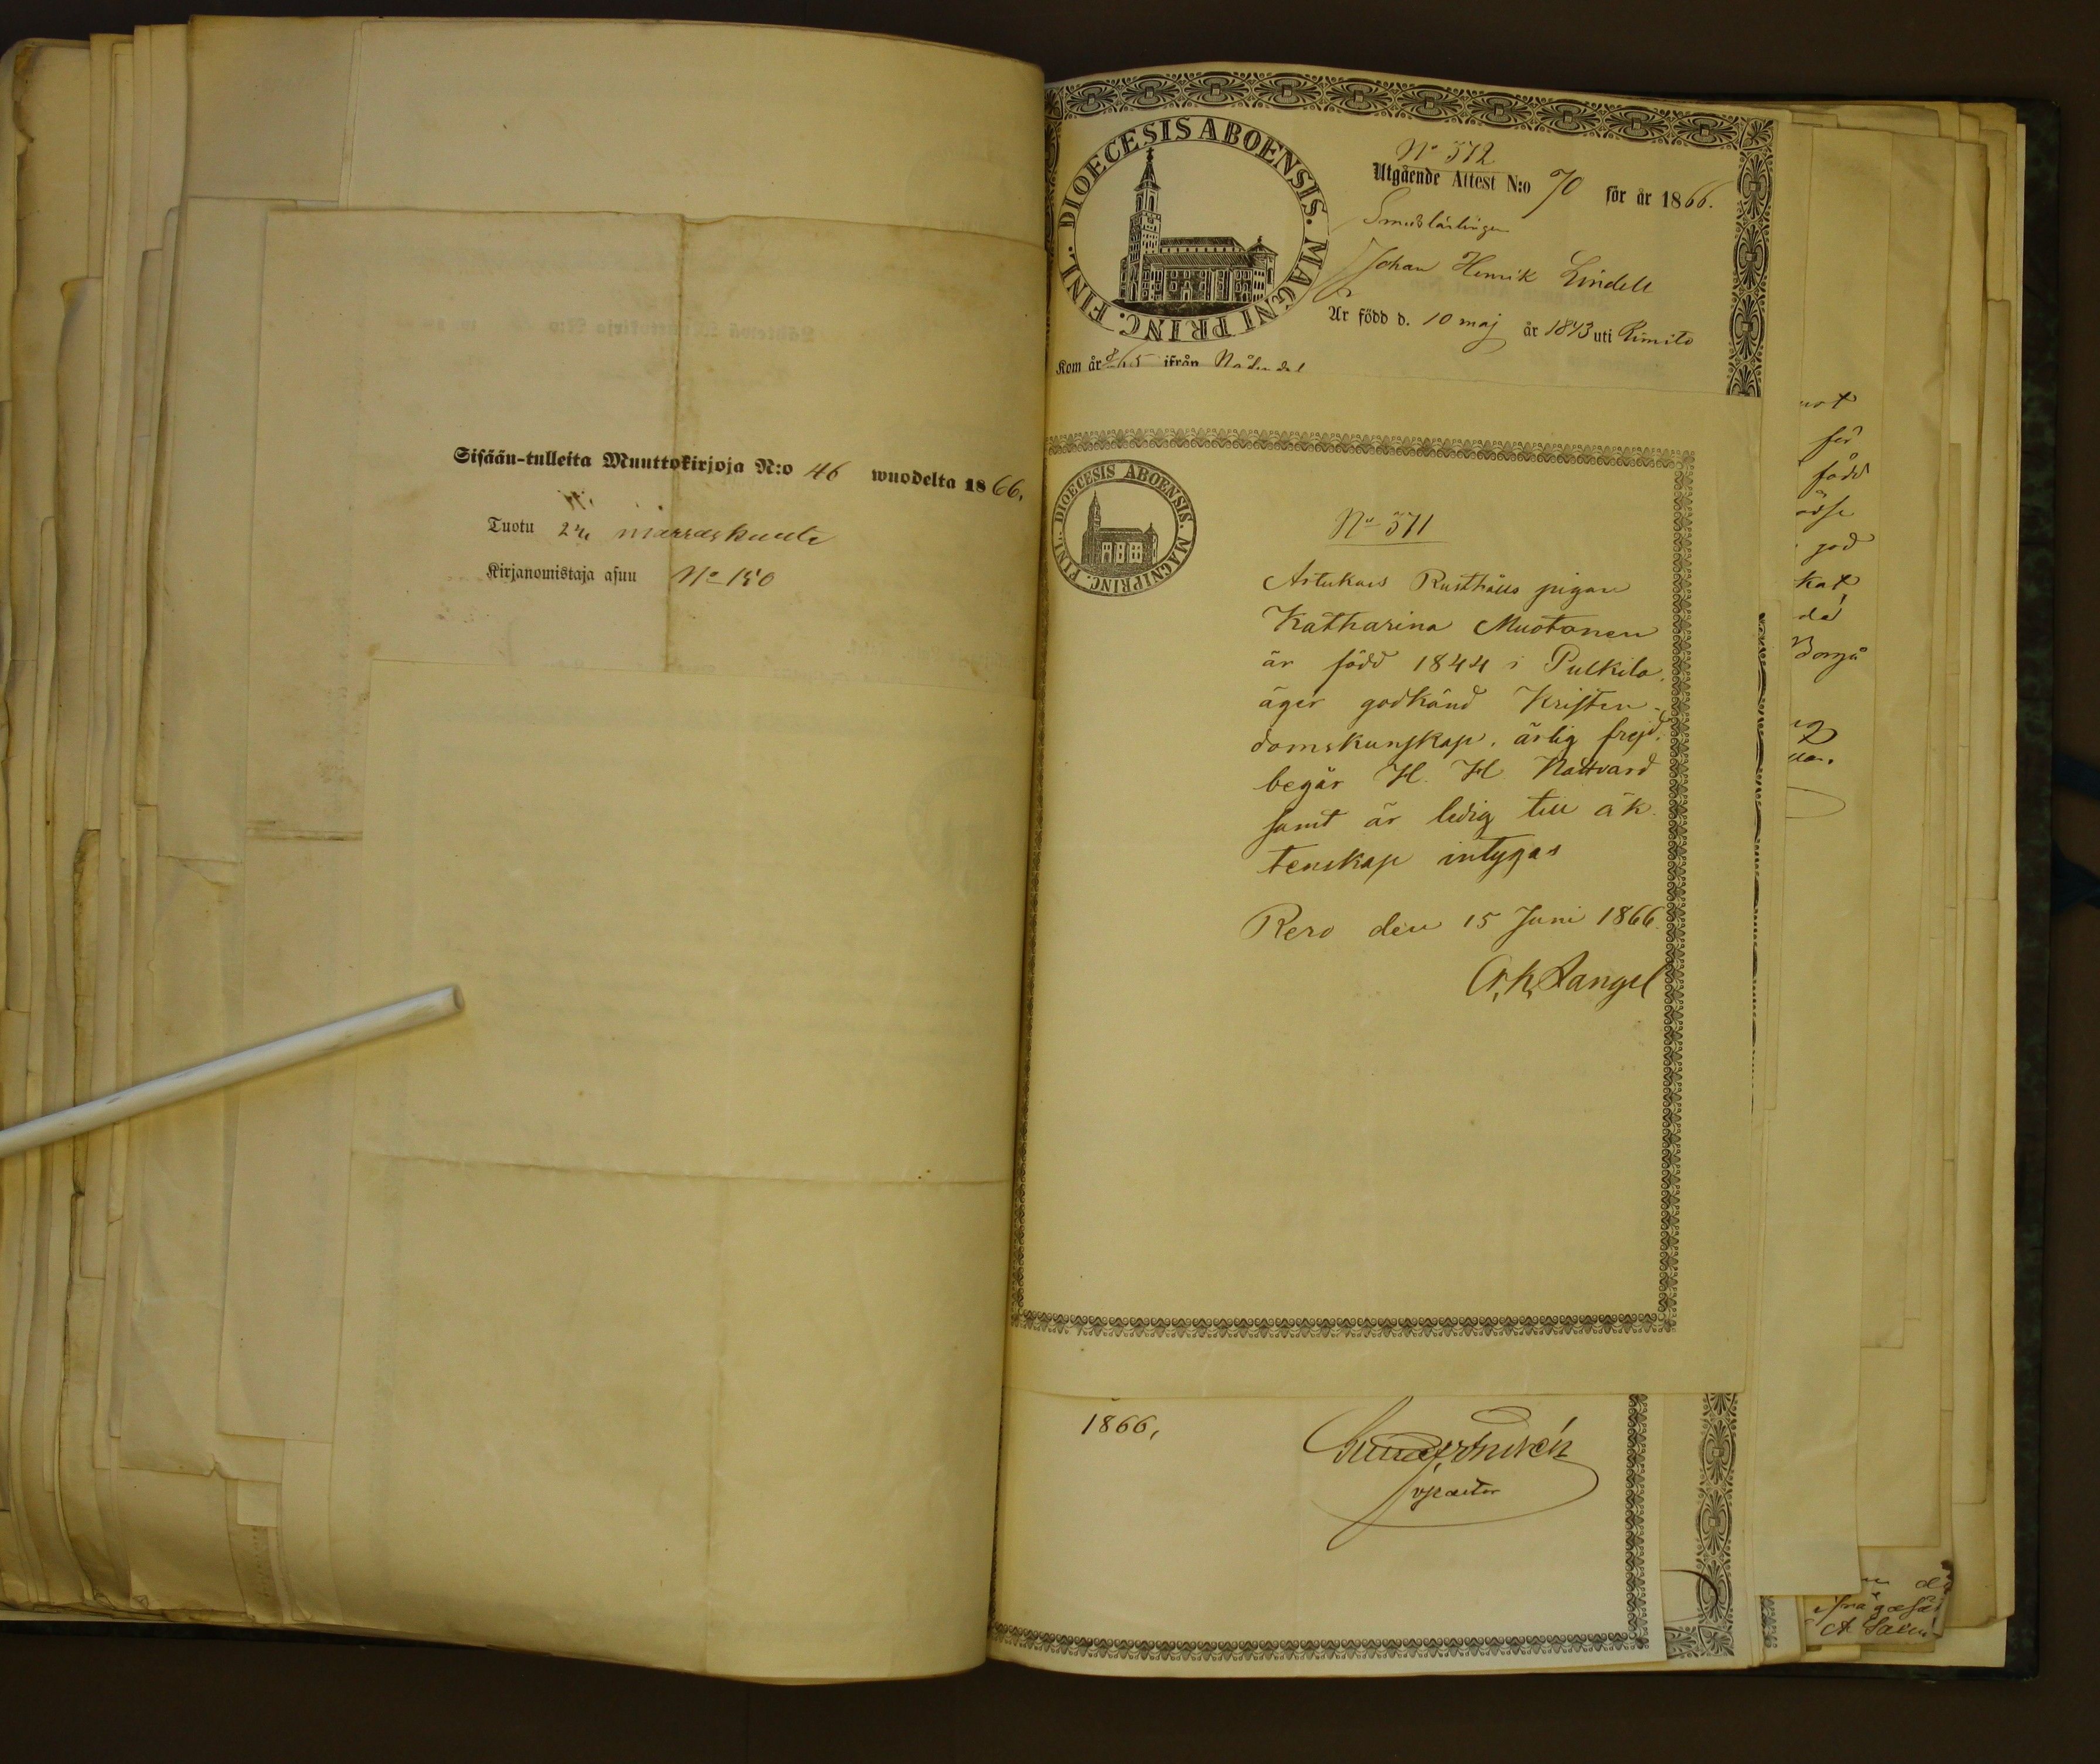 Sisään-tulleita Muuttokirjoja N:o 46 wuodelta 1866,
Tuotu 24 marraskuuta
Kirjanomistaja asuu No 150
DIOECESIS ABOENSIS. MAGNI PRINC. FINL.
No 572
Utgående Attest N:o 70 för år 1866.
Smedslärlingen
Johan Henrik Lindell
Är född d. 10 maj år 1843 uti Rimito
Kom år 1865 ifrån Nådendal
DIOECESIS ABOENSIS. MAGNI PRINC. FINL.
No 571
Artukais Rusthålls pigan
Katharina Muotonen
är född 1844 i Pulkila,
äger godkänd Kristen-
domskunskap, ärlig frejd,
begår H. H. Nattvard
samt är ledig till äk
tenskap intygas
Rero den 15 Juni 1866.
Langel
1866,
vpastor
för
född
god
kat
Borgå